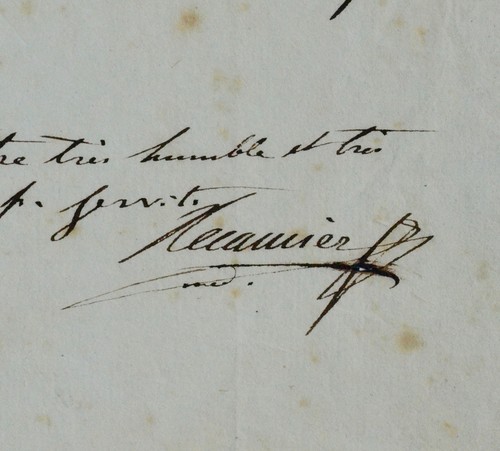 tre très humble et très
f. servit.
Recamier
md.